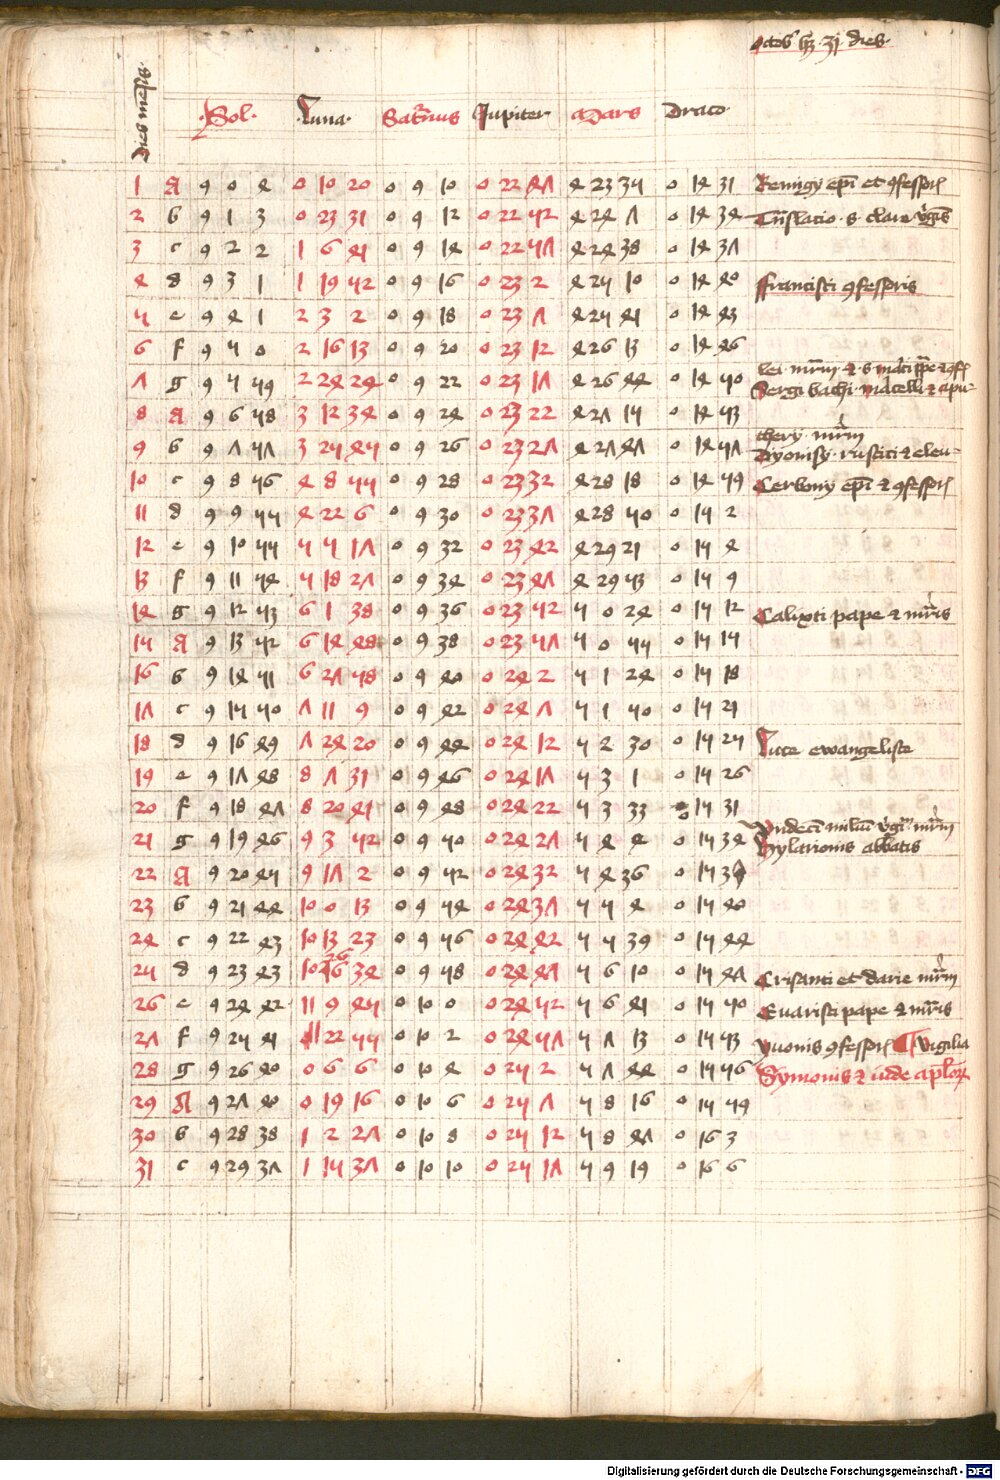 Octob' hz 31 dies
dies mēsis
Sol Luna Sat'nus Jupiter Mars Draco
1 A 9 0 4 0 10 20 0 9 10 0 22 47 4 23 35 0 14 31 Remigij epī et 9fessor
2 b 9 1 3 0 23 31 0 9 12 0 22 52 4 24 7 0 14 34 Trāslatio s clare v'gīs
3 c 9 2 2 1 6 41 0 9 14 0 22 57 4 24 38 0 14 37
4 d 9 3 1 1 19 52 0 9 16 0 23 2 4 25 10 0 14 40 ffrancisci 9fessoris
5 e 9 4 1 2 3 2 0 9 18 0 23 7 4 25 41 0 14 43
6 f 9 5 0 2 16 13 0 9 20 0 23 12 4 26 13 0 14 46
7 g 9 5 59 2 24 24 0 9 22 0 23 17 4 26 44 0 14 50
Sergi bachi marcelli & apu-
8 A 9 6 58 3 12 34 0 9 24 0 23 22 4 27 15 0 14 53
9 b 9 7 57 3 25 45 0 9 26 0 23 27 4 27 47 0 14 57 Dyonisij rustici & eleu-
10 c 9 8 56 4 8 55 0 9 28 0 23 32 4 28 18 0 14 59 Cerbonij epī & 9fessor
11 d 9 9 55 4 22 6 0 9 30 0 23 37 4 28 50 0 15 2
12 e 9 10 55 5 5 17 0 9 32 0 23 42 4 29 21 0 15 4
13 f 9 11 54 5 18 27 0 9 34 0 23 47 4 29 53 0 15 9
14 g 9 12 53 6 1 38 0 9 36 0 23 52 5 0 24 0 15 12 Calixti pape & mr̄is
15 A 9 13 52 6 14 48 0 9 38 0 23 57 5 0 55 0 15 15
16 b 9 14 51 6 27 58 0 9 40 0 24 2 5 1 24 0 15 18
17 c 9 15 50 7 11 9 0 9 42 0 24 7 5 1 50 0 15 21
18 d 9 16 49 7 24 20 0 9 44 0 24 12 5 2 30 0 15 25 Luce ewangeliste
19 e 9 17 48 8 7 31 0 9 46 0 24 17 5 3 1 0 15 26
20 f 9 18 47 8 20 41 0 9 48 0 24 22 5 3 33 0 15 31
21 g 9 19 46 9 3 52 0 9 50 0 24 27 5 4 4 0 15 34 Hylarionis abbatis
22 A 9 20 45 9 17 2 0 9 52 0 24 32 5 4 36 0 15 3
23 b 9 21 44 10 0 13 0 9 54 0 24 37 5 5 4 0 15 40
24 c 9 22 43 10 13 23 0 9 56 0 24 42 5 5 39 0 15 44
25 d 9 23 43 10 26 34 0 9 58 0 24 47 5 6 10 0 15 47 Crisanti et darie mr̄m
26 e 9 24 42 11 9 45 0 10 0 0 24 52 5 6 41 0 15 50 Evaristi pape & mr̄is
27 f 9 25 41 11 22 55 0 10 2 0 24 57 5 7 13 0 15 53 yuonis 9fessor Vigilia
28 g 9 26 40 0 6 6 0 10 4 0 25 2 5 7 44 0 15 56 Symonis & iude aplor
29 A 9 27 40 0 19 16 0 10 6 0 25 7 5 8 16 0 15 59
30 b 9 28 38 1 2 27 0 10 8 0 25 12 5 8 47 0 16 3
31 c 9 29 37 1 15 37 0 10 10 0 25 17 5 9 19 0 16 6
Digitalisierung gefördert durch die Deutsche Forschungsgemeinschaft - DFG